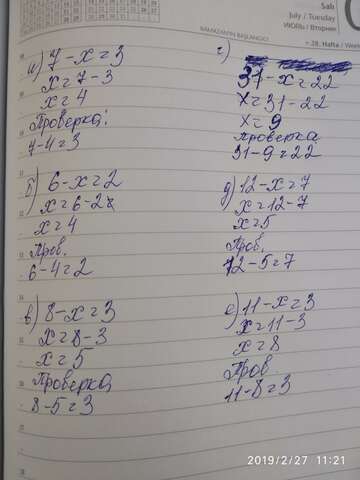 Salı
July / Tuesday
WORLU / Вторник
RAMAZAN'IN BAŞLANGICI
28. Hafta / Week
а) 7-x=3
x=7-3
x=4
Проверка:
7-4=3
б) 6-x=2
x=6-2
x=4
Пров.
6-4=2
в) 8-x=3
x=8-3
x=5
Проверка
8-5=3
г)
31-x=22
x=31-22
x=9
проверка
31-9=22
д) 12-x=7
x=12-7
x=5
Пров.
12-5=7
е) 11-x=3
x=11-3
x=8
Пров
11-8=3
2019/2/27 11:21